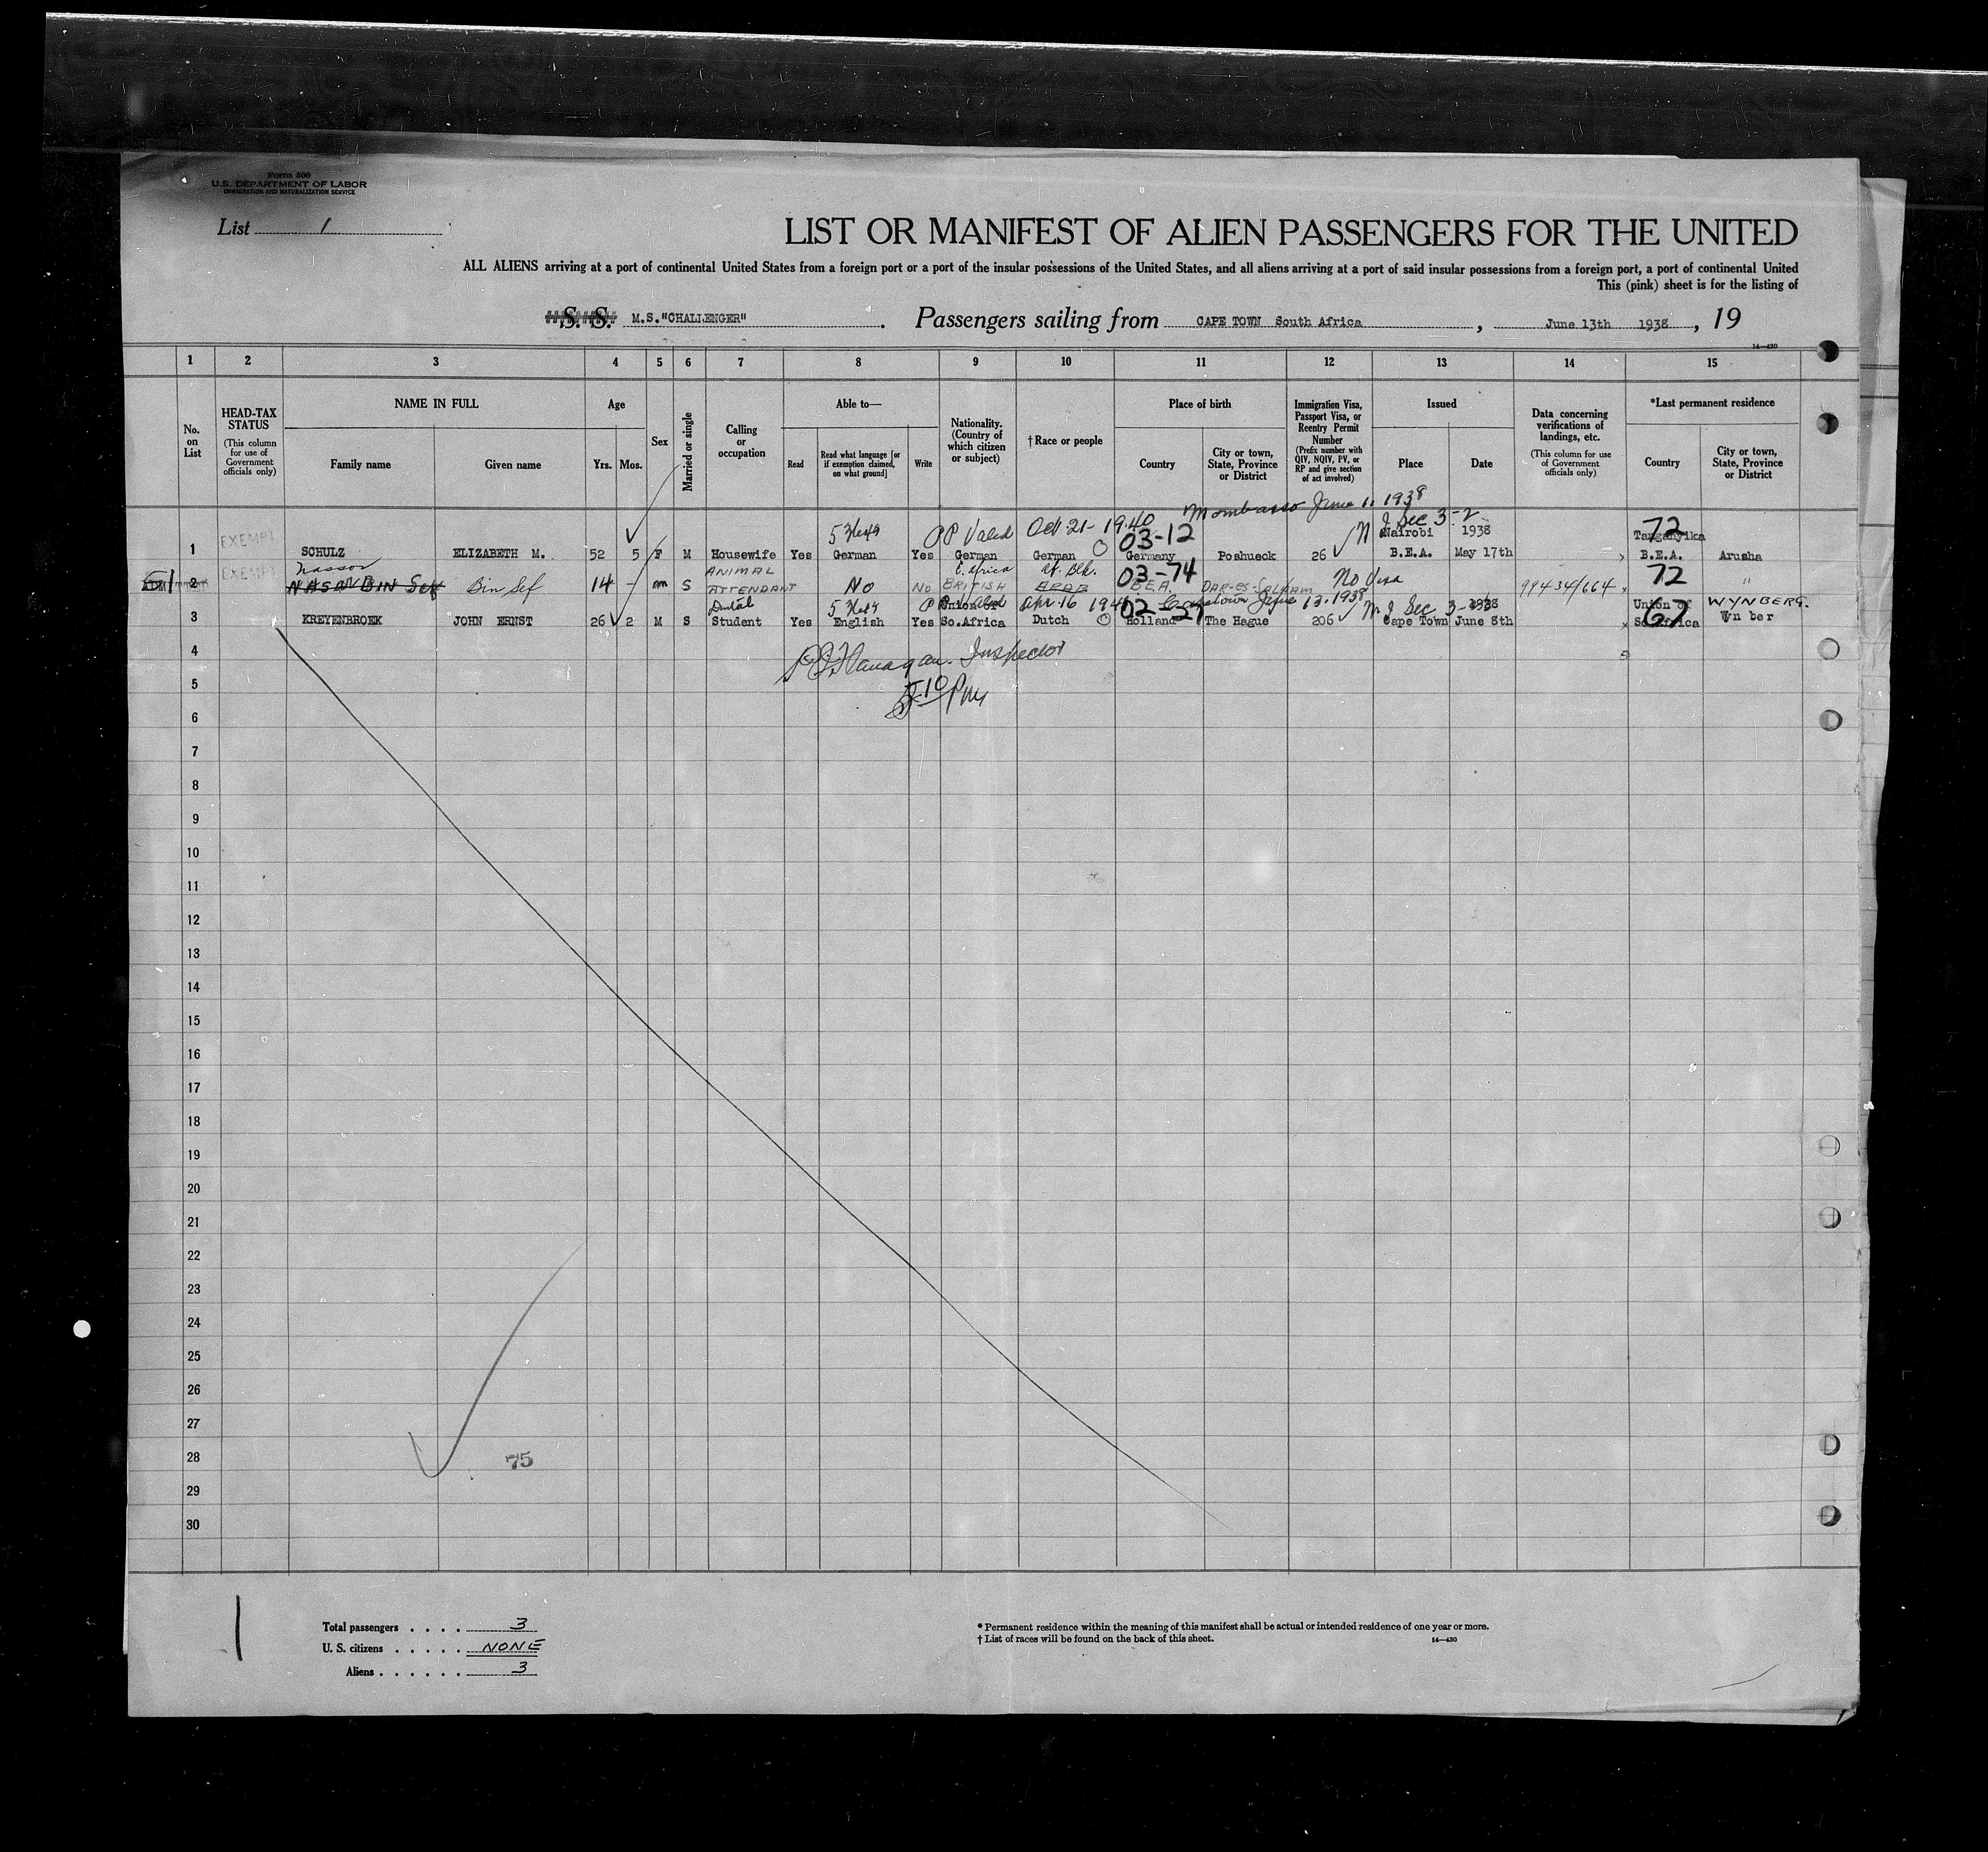 Form 500
U.S. DEPARTMENT OF LABOR
IMMIGRATION AND NATURALIZATION SERVICE
List 1
LIST OR MANIFEST OF ALIEN PASSENGERS FOR THE UNITED
ALL ALIENS arriving at a port of continental United States from a foreign port or a port of the insular possessions of the United States, and all aliens arriving at a port of said insular possessions from a foreign port, a port of continental United
This (pink) sheet is for the listing of
S. S. M.S."CHALLENGER" . Passengers sailing from CAPE TOWN South Africa , June 13th 1938 , 19
14—430
1 2 3 4 5 6 7 8 9 10 11 12 13 14 15
No. on List
HEAD-TAX STATUS (This column for use of Government officials only)
NAME IN FULL
Family name Given name
Age
Yrs. Mos.
Sex
Married or single
Calling or occupation
Able to—
Read Read what language [or if exemption claimed, on what ground] Write
Nationality. (Country of which citizen or subject)
†Race or people
Place of birth
Country City or town, State, Province or District
Immigration Visa, Passport Visa, or Reentry Permit Number (Prefix number with QIV, NQIV, PV, or RP and give section of act involved)
Issued
Place Date
Data concerning verifications of landings, etc. (This column for use of Government officials only)
*Last permanent residence
Country City or town, State, Province or District
Mombasso June 11 1938
PP Valid Oct. 21- 1940 03-12 Sec 3-2 72
EXEMPT Nairobi 1938 Tanganyika
1 SCHULZ ELIZABETH M. 52 5 F M Housewife Yes German Yes German German Germany Poshueck 26 B.E.A. May 17th B.E.A. Arusha
Nasson ANIMAL E. Africa Af. Blk. 03-74 No Visa 72
EXEMPT
2 NASAN BIN SEF Bin Sef 14 - m S ATTENDANT NO NO BRITISH ARAB B.E.A. DAR-ES-SALAAM 99434/664 "
Dental Union of Apr. 16 02-27 June 13. 1938 Sec 3-2 1938 Union of 67 WYNBERG.
3 KREYENBROEK JOHN ERNST 26 2 M S Student Yes English Yes So.Africa Dutch Holland The Hague 206 Cape Town June 8th So.Africa Wynber
4
Flanagan. Inspector
5
5-10 PM
6
7
8
9
10
11
12
13
14
15
16
17
18
19
20
21
22
23
24
25
26
27
28 75
29
30
Total passengers . . . . 3
U. S. citizens . . . . . NONE
Aliens . . . . . . 3
* Permanent residence within the meaning of this manifest shall be actual or intended residence of one year or more.
† List of races will be found on the back of this sheet.
14—430